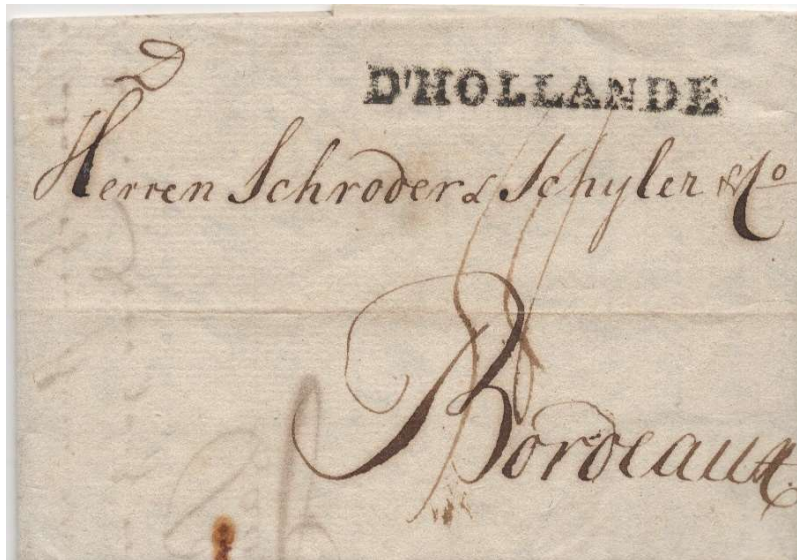 D'HOLLANDE
Herren Schroder & Schyler & Co
Bordeaux.